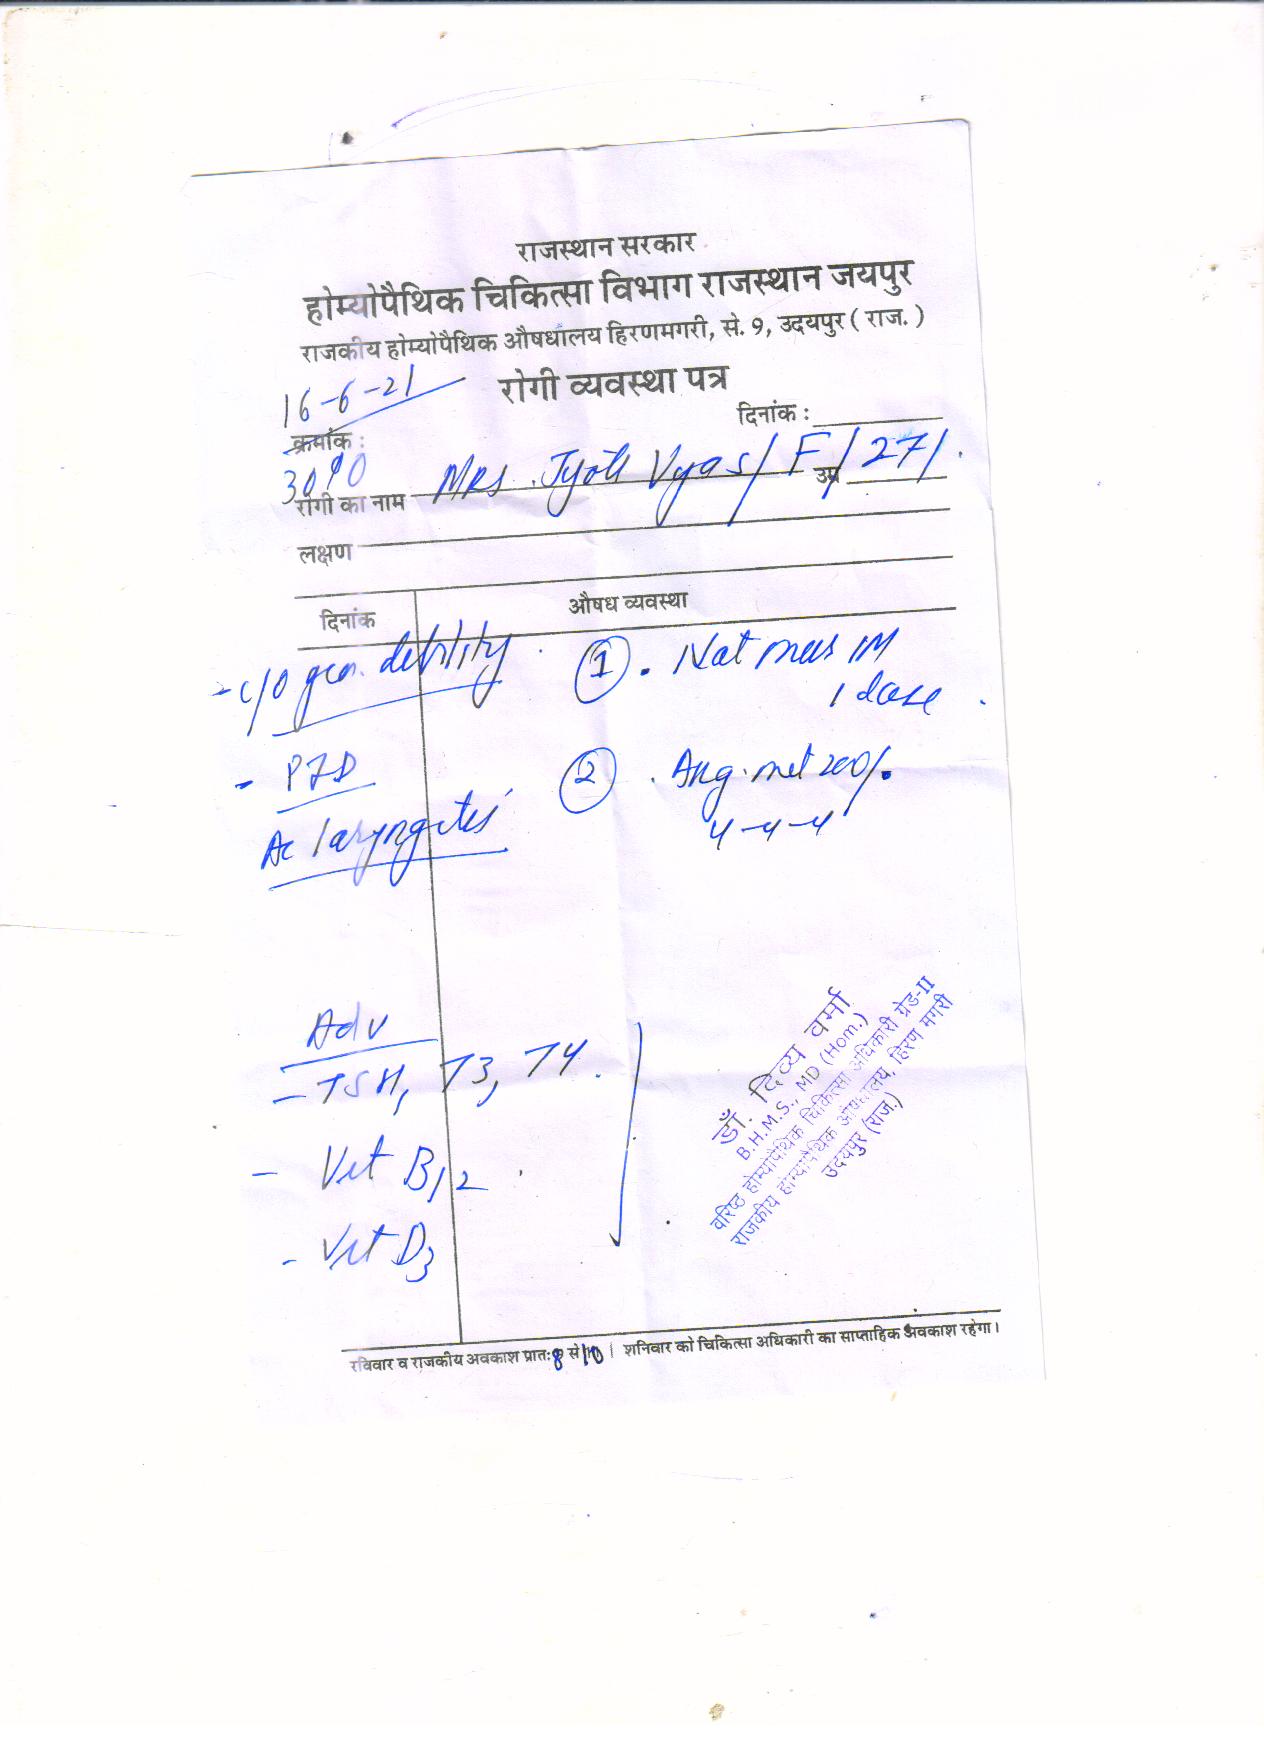 राजस्थान सरकार
होम्योपैथिक चिकित्सा विभाग राजस्थान जयपुर
राजकीय होम्योपैथिक औषधालय हिरणमगरी, से. 9, उदयपुर ( राज. )
रोगी व्यवस्था पत्र
16-6-21
दिनांक :
क्रमांक :
3010
रोगी का नाम Mrs. Jyoti Vyas / F / उम्र 27/.
लक्षण
दिनांक औषध व्यवस्था
- c/o gen. debility . ① . Nat mur 1M
1 dose .
- PID ② . Arg. met 200/.
4-4-4
Ac laryngitis
Adv
- TSH, T3, T4 .
- Vit B12
- Vit D3
डॉ. दिव्य वर्मा
B.H.M.S., MD (Hom.)
वरिष्ठ होम्योपैथिक चिकित्सा अधिकारी ग्रेड-II
राजकीय होम्योपैथिक औषधालय, हिरण मगरी
उदयपुर (राज.)
रविवार व राजकीय अवकाश प्रातः 8 से 10 । शनिवार को चिकित्सा अधिकारी का साप्ताहिक अवकाश रहेगा।